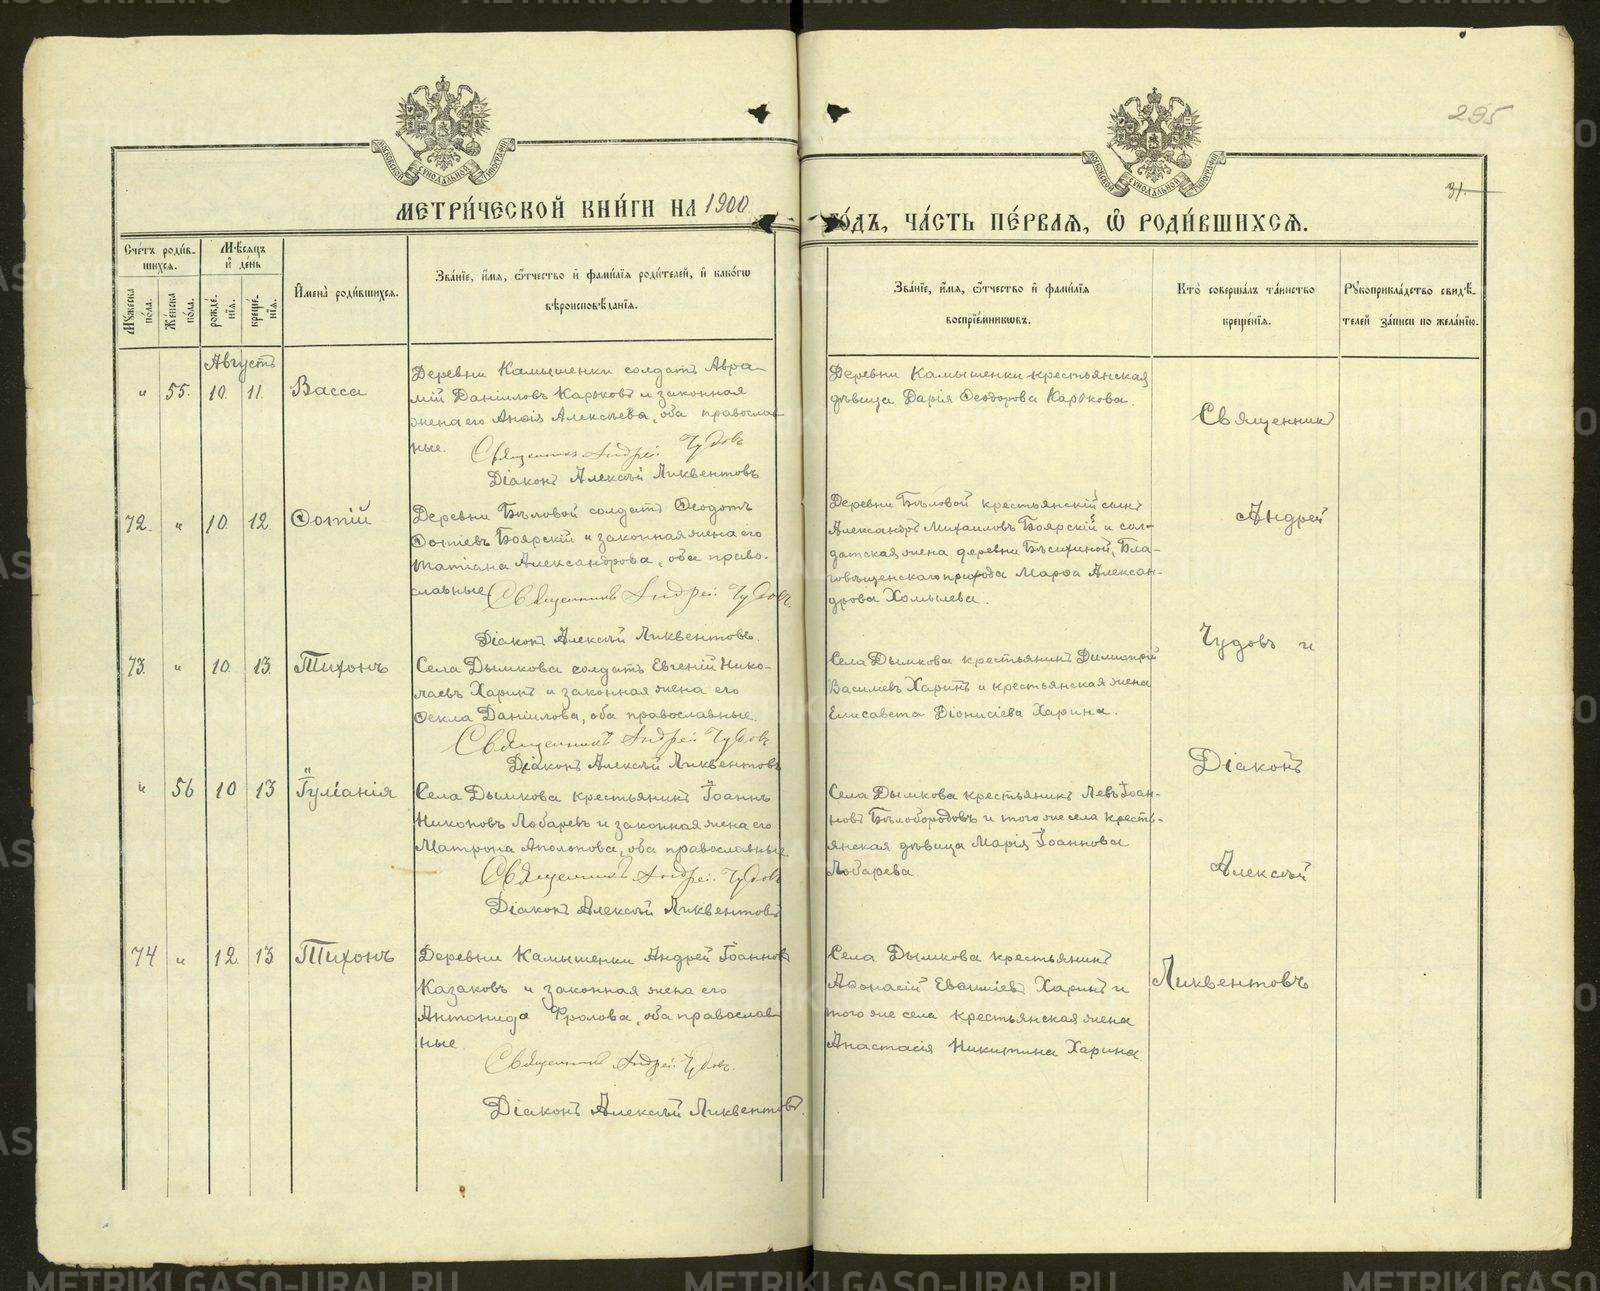 295
31.
МЕТРИ́ЧЕСКОЙ КНИ́ГИ НА 1900
ГО́ДЪ, ЧА́СТЬ ПЕ́РВАЯ, Ѿ РОДИ́ВШИХСЯ.
Сче́тъ роди́в-
шихся.
Му́жеска по́ла.
Же́нска по́ла.
Мѣ́сяцъ и де́нь
рожде́нїя.
креще́нїя.
И҆мена̀ роди́вшихся.
Зва́нїе, и҆́мя, ѻ҆́тчество и҆ фами́лїя роди́телей, и҆ како́гѡ
вѣроисповѣ́данїя.
Зва́нїе, и҆́мя, ѻ҆́тчество и҆ фами́лїя
воспрїе́мникѡвъ.
Кто̀ соверша́лъ та́инство
креще́нїя.
Рꙋкоприкла́дство свидѣ́-
телей за́писи по жела́нїю.
Августъ
" 55. 10. 11. Васса
Деревни Камышенки солдатъ Авра-
мій Даніиловъ Карюковъ и законная
жена его Анѳія Алексѣева, оба православ
ные.
Священникъ Андрей Чудовъ
Діаконъ Алексѣй Ликвентовъ
Деревни Камышенки крестьянская
дѣвица Дарія Ѳеодорова Карюкова.
72. " 10. 12. Ѳотій
Деревни Бѣловой солдатъ Ѳеодотъ
Ѳотіевъ Боярскій и законная жена его
Татіана Александрова, оба право-
славные
Священникъ Андрей Чудовъ.
Діаконъ Алексѣй Ликвентовъ.
Деревни Бѣловой крестьянскій сынъ
Александръ Михаиловъ Боярскій и сол-
датская жена деревни Бѣсихиной, Бла-
говѣщенскаго прихода Марѳа Алексан-
дрова Хомылева.
73. " 10. 13. Тихонъ
Села Дымкова солдатъ Евгеній Нико-
лаевъ Харинъ и законная жена его
Ѳекла Даніилова, оба православные.
Священникъ Андрей Чудовъ
Діаконъ Алексѣй Ликвентовъ
Села Дымкова крестьянинъ Димитрій
Василіевъ Харинъ и крестьянская жена
Елисавета Діонисіева Харина.
" 56 10 13 Іуліанія
Села Дымкова крестьянинъ Іоаннъ
Никоновъ Лобаревъ и законная жена его
Матрона Аполонова, оба православные
Священникъ Андрей Чудовъ
Діаконъ Алексѣй Ликвентовъ
Села Дымкова крестьянинъ Левъ Іоан-
новъ Бѣлобородовъ и того же села кресть-
янская дѣвица Марія Іоаннова
Лобарева.
74 " 12. 13 Тихонъ
Деревни Камышенки Андрей Іоаннов
Казаковъ и законная жена его
Антонида Фролова, оба православ
ные.
Священникъ Андрей Чудовъ.
Діаконъ Алексѣй Ликвентовъ.
Села Дымкова крестьянинъ
Аѳонасій Евѳиміевъ Харинъ и
того же села крестьянская жена
Анастасія Никитина Харина
Священникъ
Андрей
Чудовъ и
Діаконъ
Алексѣй
Ликвентовъ
METRIKI.GASO-URAL.RU